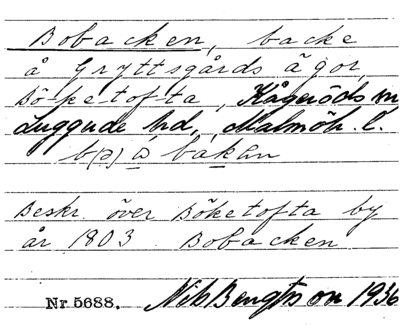 Bobacken, backe
å Gryttsgårds ägor,
Böketofta, Kågeröds sn
Luggude hd, Malmöh. l.
b(ə)a bakən
Beskr. över Böketofta by
år 1803 Bobacken
Nr 5688. Nils Bengtsson 1936